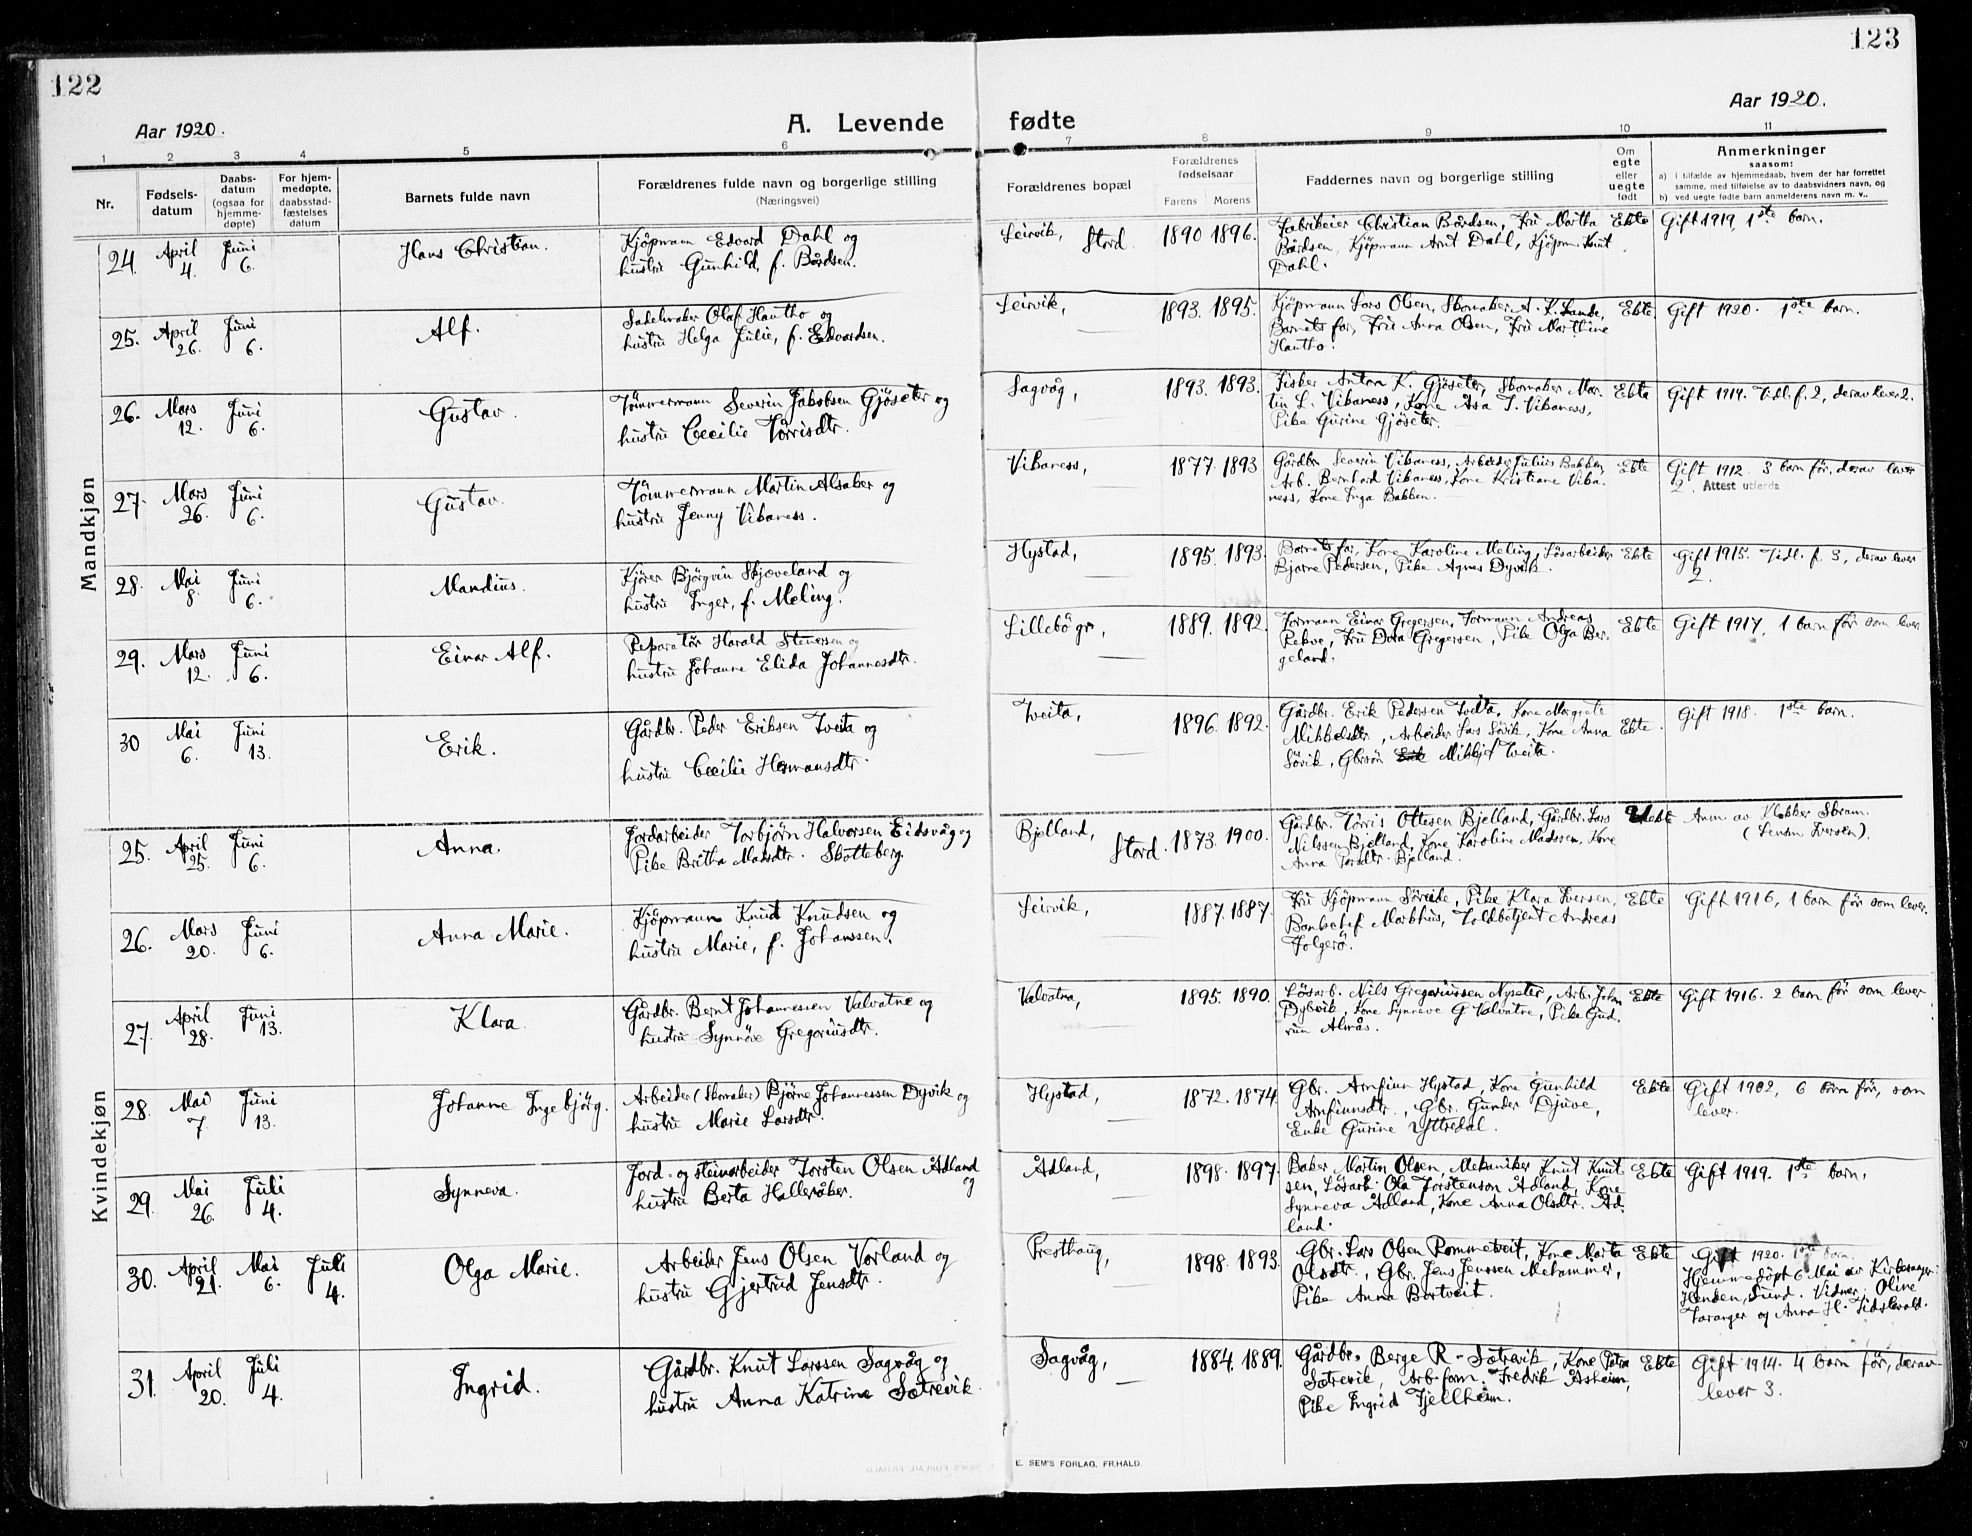 122
123
Aar 1920.
A. Levende fødte
Aar 1920.
1 2 3 4 5 6 7 8 9 10 11
Nr.
Fødsels-
datum
Daabs-
datum
(ogsaa for
hjemme-
døpte)
For hjem-
medøpte,
daabsstad-
fæstelses
datum
Barnets fulde navn
Forældrenes fulde navn og borgerlige stilling
(Næringsvei)
Forældrenes bopæl
Forældrenes
fødselsaar
Farens Morens
Faddernes navn og borgerlige stilling
Om
egte
eller
uegte
født
Anmerkninger
saasom:
a) i tilfælde av hjemmedaab, hvem der har forrettet
samme, med tilføielse av to daabsvidners navn, og
b) ved uegte fødte barn anmelderens navn m. v..
Mandkjøn
24. April 4. Juni 6. Hans Christian.
Kjöpmann Edvard Dahl og
hustru Gunhild, f. Bårdsen.
Leirvik, Stord. 1890 1896.
Fabrikeier Christian Bårdsen, Fru Martha
Bårdsen, Kjöpmann Arnt Dahl, Kjöpm. Knut
Dahl.
Ekte Gift 1919, 1ste barn.
25. April 26. Juni 6. Alf.
Sadelmaker Olaf Hautho og
hustru Helga Julie, f. Edvardsen.
Leirvik, 1893. 1895.
Kjöpmann Lars Olsen, Skomaker A. K. Lunde,
Barnets far, Fru Anna Olsen, Fru Marthine
Hautho.
Ekte Gift 1920. 1ste barn.
26. Mars 12. Juni 6. Gustav.
Tömmermann Severin Jakobsen Gjöseter og
hustru Cecilie Törrisdtr.
Sagvåg, 1893. 1893.
Fisker Anton K. Gjöseter, Skomaker Mar-
tin L. Vikaness, Kone Åsa T. Vikaness,
Pike Gurine Gjöseter.
Ekte Gift 1914. Tidl. f. 2, derav lever 2.
27. Mars 26. Juni 6. Gustav.
Tömmermann Martin Alsaker og
hustru Jenny Vikaness.
Vikaness, 1877. 1893
Gårdbr. Severin Vikaness, Arbeider Julius Bakken,
Arb. Bernhard Vikaness, Kone Kristiane Vika-
ness, Kone Inga Bakken.
Ekte Gift 1912. 3 barn før, derav lever
2. Attest utferda
28. Mai 8. Juni 6. Mandius.
Kjörer Björgvin Skjæveland og
hustru Inger, f. Meling.
Hystad, 1895. 1893.
Barnets far, Kone Karoline Meling, Lösarbeider
Bjarne Pedersen, Pike Agnes Dyvik.
Ekte Gift 1915. Tidl. f. 3, derav lever
2.
29. Mars 12. Juni 6. Einar Alf.
Reparatör Harald Stenersen og
hustru Johanne Elida Johannesdtr.
Lillebö gr, 1889. 1892.
Formann Einar Gregersen, Formann Andreas
Rekve, Fru Dora Gregersen, Pike Olga Ber-
geland.
Ekte Gift 1917, 1 barn før som lever
30 Mai 6. Juni 13. Erik.
Gårdbr. Peder Eriksen Tveita og
hustru Cecilie Hermansdtr.
Tveita, 1896. 1892.
Gårdbr. Erik Pedersen Tveita, Kone Margrete
Mikkelsdtr, Arbeider Lars Sövik, Kone Anna
Sövik, Gbrsön Mikkjel Tveita.
Ekte. Gift 1918. 1ste barn.
Kvindekjøn
25. April 25. Juni 6. Anna.
Jordarbeider Torbjörn Halvorsen Eidsvåg og
Pike Britha Madsdtr. Skatteberg.
Bjelland, Stord. 1873. 1900.
Gårdbr. Törris Ottesen Bjelland, Gårdbr. Lars
Nilssen Bjelland, Kone Karoline Madssen, Kone
Anna Larsdtr. Bjelland.
Uekte Anm av Klokker Skram.
(Lensm Iversen).
26. Mars 20. Juni 6. Anna Marie.
Kjöpmann Knut Knudsen og
hustru Marie, f. Johanssen.
Leirvik, 1887. 1887.
Fru Kjöpmann Söreide, Pike Klara Iversen,
Bankchef Markhus, Toldbetjent Andreas
Folgerö.
Ekte Gift 1916, 1 barn før som lever.
27. April 28. Juni 13. Klara.
Gårdbr. Bernt Johannessen Valvatne og
hustru Synnöve Gregoriusdtr.
Valvatna, 1895. 1890.
Lösarb. Nils Gregoriussen Nyseter, Arb. Johan
Dybvik, Kone Synneve G Valvatne, Pike Gud-
run Almås.
Ekte Gift 1916. 2 barn før som lever
28. Mai 7 Juni 13. Johanne Ingebjörg.
Arbeider (Skomaker) Bjørne Johannessen Dyvik og
hustru Marie Larsdtr.
Hystad, 1872. 1874.
Gbr. Arnfinn Hystad, Kone Gunhild
Arnfinnsdtr., Gbr. Gunder Djuve,
Enke Gurine Yttredal.
Ekte Gift 1902, 6 barn før, som
lever.
29. Mai 26. Juli 4. Synneva.
Jord- og steinarbeider Torsten Olsen Ådland
og
hustru Berta Halleråker.
Ådland, 1898. 1897.
Baker Martin Olsen, Mekaniker Knut Knut-
sen, Lösarb. Ola Torstenson Ådland, Kone
Synneva Ådland, Kone Anna Olsdtr. Åd-
land.
Ekte Gift 1919. 1ste barn.
30. April 21. Mai 6. Juli 4. Olga Marie.
Arbeider Jens Olsen Vorland og
hustru Gjertrud Jensdtr.
Presthaug, 1898. 1893.
Gbr. Lars Olsen Rommetveit, Kone Marta
Olsdtr., Gbr. Jens Jenssen Mehammer,
Pike Anna Bortveit.
Ekte Gift 1920. 1ste barn.
Hjemmedöpt 6 Mai av Kirkesanger
Henden, Sund. Vidner: Oline
Taranger og Anna H. Tidslevold.
31. April 20. Juli 4. Ingrid.
Gårdbr. Knut Larssen Sagvåg og
hustru Anna Katrine Sætrevik.
Sagvåg, 1884. 1889.
Gårdbr. Berge R. Sætrevik, Kone Petra
Sætrevik, Arb.form. Fredrik Åsheim,
Pike Ingrid Fjellheim.
Ekte Gift 1914. 4 barn før, derav
lever 3.
E. SEM'S FORLAG, FR.HALD.